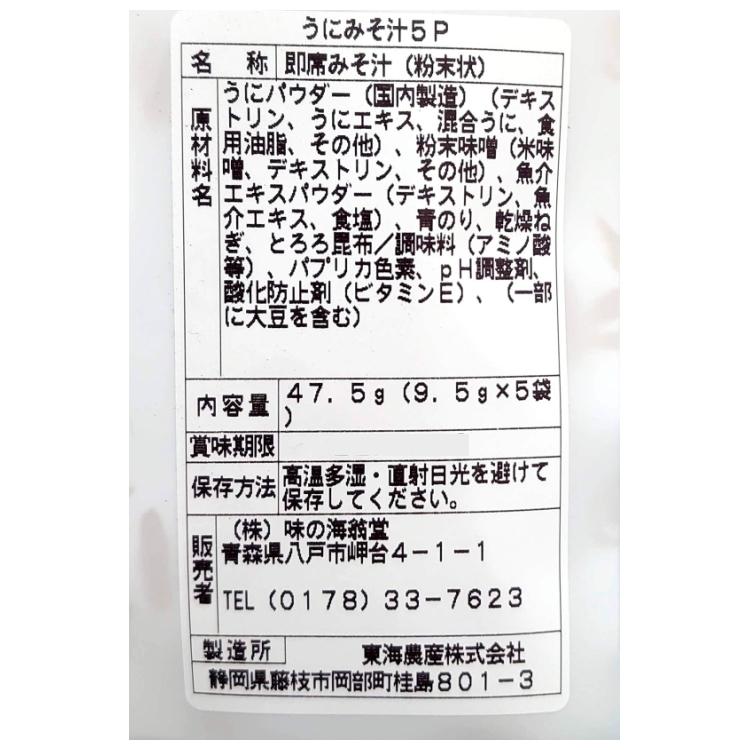 うにみそ汁5P
名称 即席みそ汁（粉末状）
原材料名
うにパウダー（国内製造）（デキス
トリン、うにエキス、混合うに、食
用油脂、その他）、粉末味噌（米味
噌、デキストリン、その他）、魚介
エキスパウダー（デキストリン、魚
介エキス、食塩）、青のり、乾燥ね
ぎ、とろろ昆布／調味料（アミノ酸
等）、パプリカ色素、ｐＨ調整剤、
酸化防止剤（ビタミンＥ）、（一部
に大豆を含む）
内容量 47.5g（9.5g×5袋
）
賞味期限
保存方法 高温多湿・直射日光を避けて
保存してください。
販売者
（株）味の海翁堂
青森県八戸市岬台4－1－1
TEL（0178）33－7623
製造所 東海農産株式会社
静岡県藤枝市岡部町桂島801－3